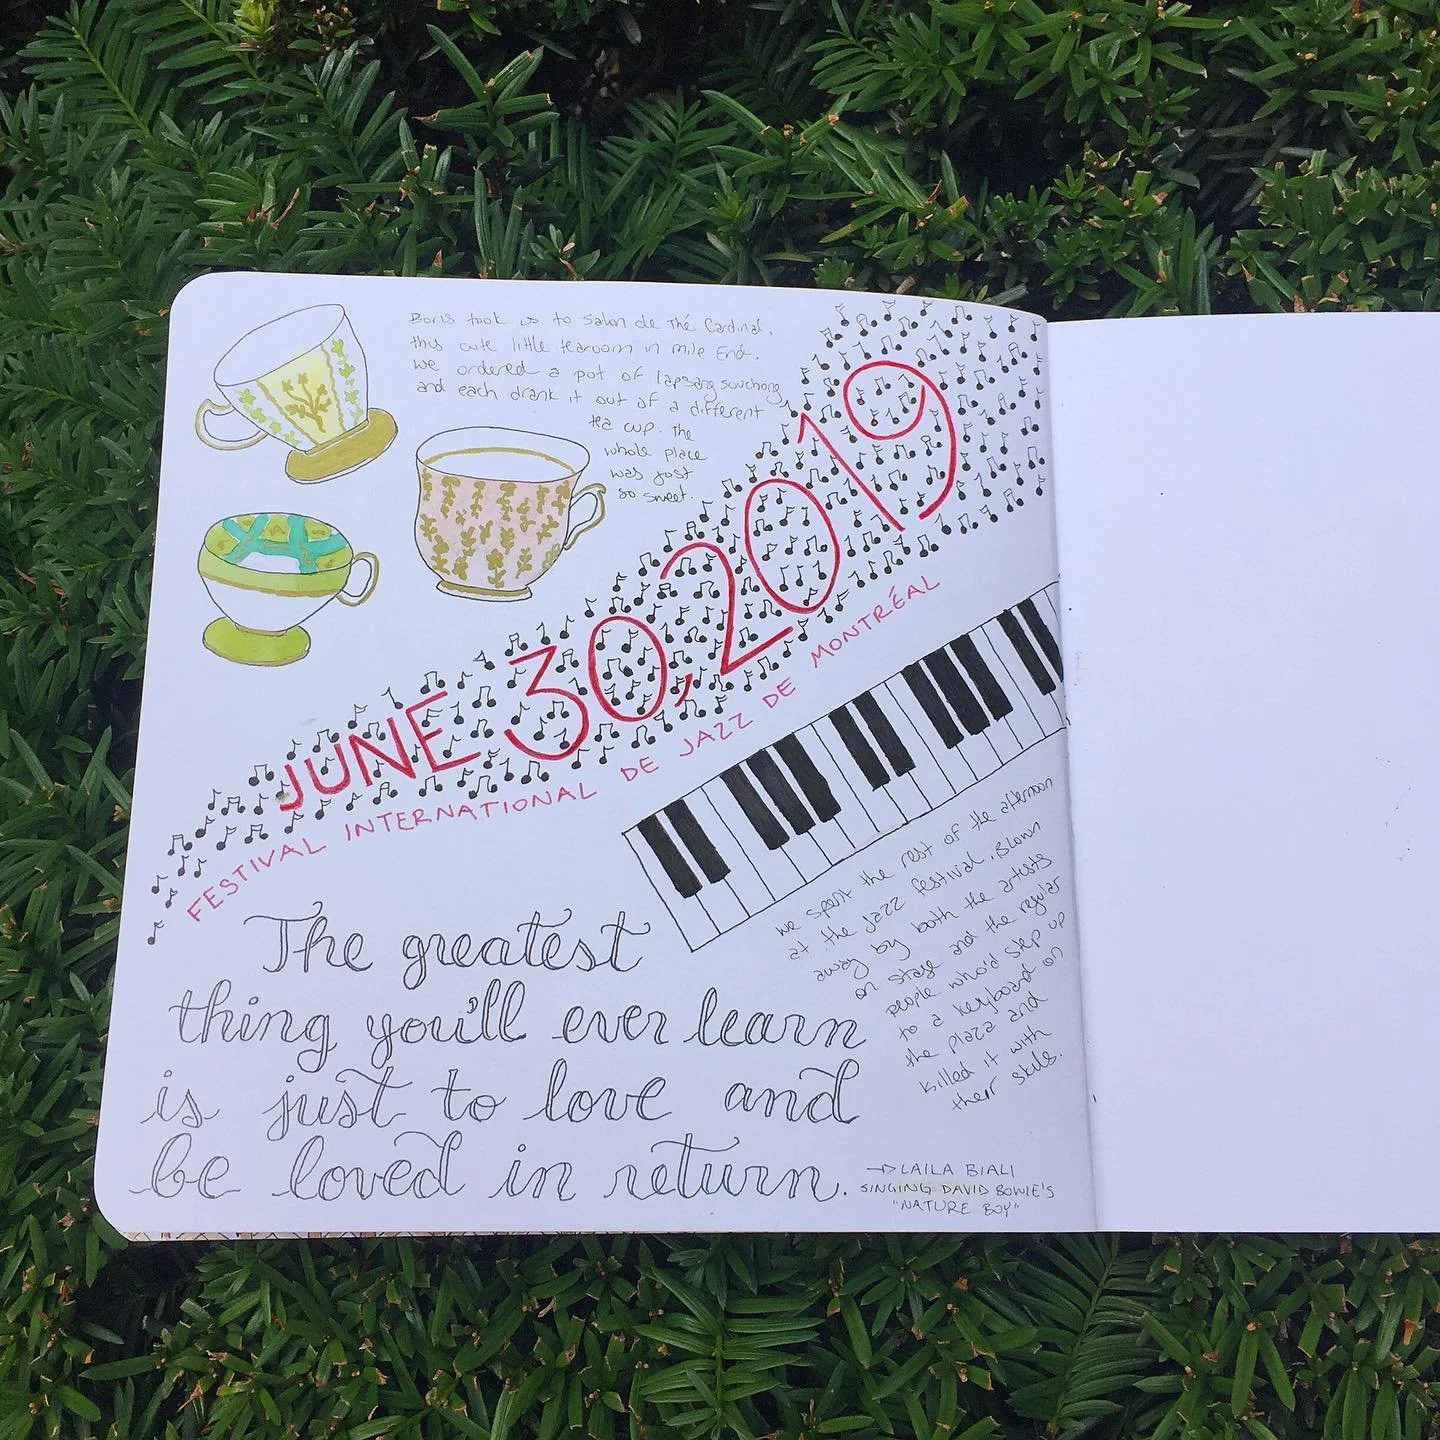 Boris took us to Salon de Thé Cardinal,
this cute little tearoom in Mile End.
We ordered a pot of lapsang souchong
and each drank it out of a different
tea cup. The
whole place
was just
so sweet.
JUNE 30, 2019
FESTIVAL INTERNATIONAL DE JAZZ DE MONTRÉAL
We spent the rest of the afternoon
at the jazz festival. Blown
away by both the artists
on stage and the regular
people who'd step up
to a keyboard on
the plaza and
killed it with
their skills.
The greatest
thing you'll ever learn
is just to love and
be loved in return.
→ LAILA BIALI
SINGING DAVID BOWIE'S
"NATURE BOY"